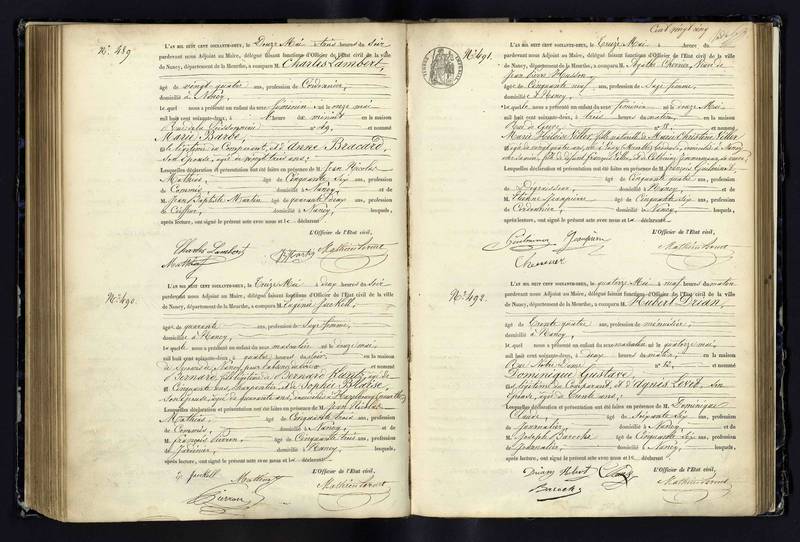 N.° 489
L'AN MIL HUIT CENT SOIXANTE-DEUX, le Douze Mai trois heures du soir
pardevant nous Adjoint au Maire, délégué faisant fonctions d'Officier de l'Etat civil de la ville
de Nancy, département de la Meurthe, a comparu M. Charles Lambert,
âgé de vingt quatre ans, profession de Cordonnier,
domicilié à Nancy
Lequel nous a présenté un enfant du sexe féminin né le onze mai
mil huit cent soixante-deux, à heure de minuit en la maison
N° 49, et nommé
Marie Barbe
fille légitime du Comparant, et d'Anne Bracard,
Son épouse, âgée de vingt trois ans;
Lesquelles déclaration et présentation ont été faites en présence de M. Jean Nicolas
Mathieu, âgé de Cinquante six ans, profession
de Commis, domicilié à Nancy, et de
M. Jean Baptiste Martin âgé de quarante deux ans, profession
de Coiffeur, domicilié à Nancy, lesquels,
après lecture, ont signé le présent acte avec nous et le déclarant
L'Officier de l'Etat civil,
Charles Lambert
N.° 490.
L'AN MIL HUIT CENT SOIXANTE-DEUX, le Treize Mai à deux heures du soir
pardevant nous Adjoint au Maire, délégué faisant fonctions d'Officier de l'Etat civil de la ville
de Nancy, département de la Meurthe, a comparu M. Eugénie
âgée de quarante ans, profession de Sage femme,
domiciliée à Nancy,
Laquelle nous a présenté un enfant du sexe masculin né le douze mai
mil huit cent soixante-deux, à quatre heures du soir, en la maison
et nommé
Bernard, fils légitime de Bernard Kuntz, âgé de
Cinquante ans, Charpentier, et de Sophie Blaise,
Son épouse, âgée de quarante ans,
Lesquelles déclaration et présentation ont été faites en présence de M. Jean Nicolas
Mathieu, âgé de Cinquante trois ans, profession
de Commis, domicilié à Nancy et de
M. françois Pierron âgé de Cinquante trois ans, profession
de domicilié à Nancy, lesquels,
après lecture, ont signé le présent acte avec nous et la déclarante
L'Officier de l'Etat civil,
Pierron
Cent vingt cinq
N.° 491.
L'AN MIL HUIT CENT SOIXANTE-DEUX, le Treize Mai à heure du
pardevant nous Adjoint au Maire, délégué faisant fonctions d'Officier de l'Etat civil de la ville
de Nancy, département de la Meurthe, a comparu M. Agathe Veuve de
Jean Pierre
âgée de Cinquante neuf ans, profession de Sage femme,
domiciliée à Nancy
Laquelle nous a présenté un enfant du sexe féminin né le douze Mai
mil huit cent soixante-deux, à trois heures du matin, en la maison
N° 18, et nommé
Marie fille naturelle de Marie Christine
âgée de vingt quatre ans,
Lesquelles déclaration et présentation ont été faites en présence de M. françois
âgé de Cinquante quatre ans, profession
de Dégraisseur, domicilié à Nancy, et de
M. Etienne âgé de Cinquante six ans, profession
de Cordonnier, domicilié à Nancy, lesquels,
après lecture, ont signé le présent acte avec nous et la déclarante
L'Officier de l'Etat civil,
N.° 492.
L'AN MIL HUIT CENT SOIXANTE-DEUX, le quatorze Mai à neuf heures du matin
pardevant nous Adjoint au Maire, délégué faisant fonctions d'Officier de l'Etat civil de la ville
de Nancy, département de la Meurthe, a comparu M. Hubert Drian,
âgé de Trente quatre ans, profession de menuisier,
domicilié à Nancy,
Lequel nous a présenté un enfant du sexe masculin né le quatorze mai
mil huit cent soixante-deux, à deux heures du matin, en la maison
Rue Notre Dame N° 12, et nommé
Dominique Gustave,
fils légitime du Comparant, et d'Agnès Son
épouse, âgée de trente ans;
Lesquelles déclaration et présentation ont été faites en présence de M. Dominique
Claude, âgé de soixante six ans, profession
de Journalier, domicilié à Nancy, et de
M. Joseph âgé de Cinquante six ans, profession
de Journalier, domicilié à Nancy, lesquels,
après lecture, ont signé le présent acte avec nous et le déclarant
L'Officier de l'Etat civil,